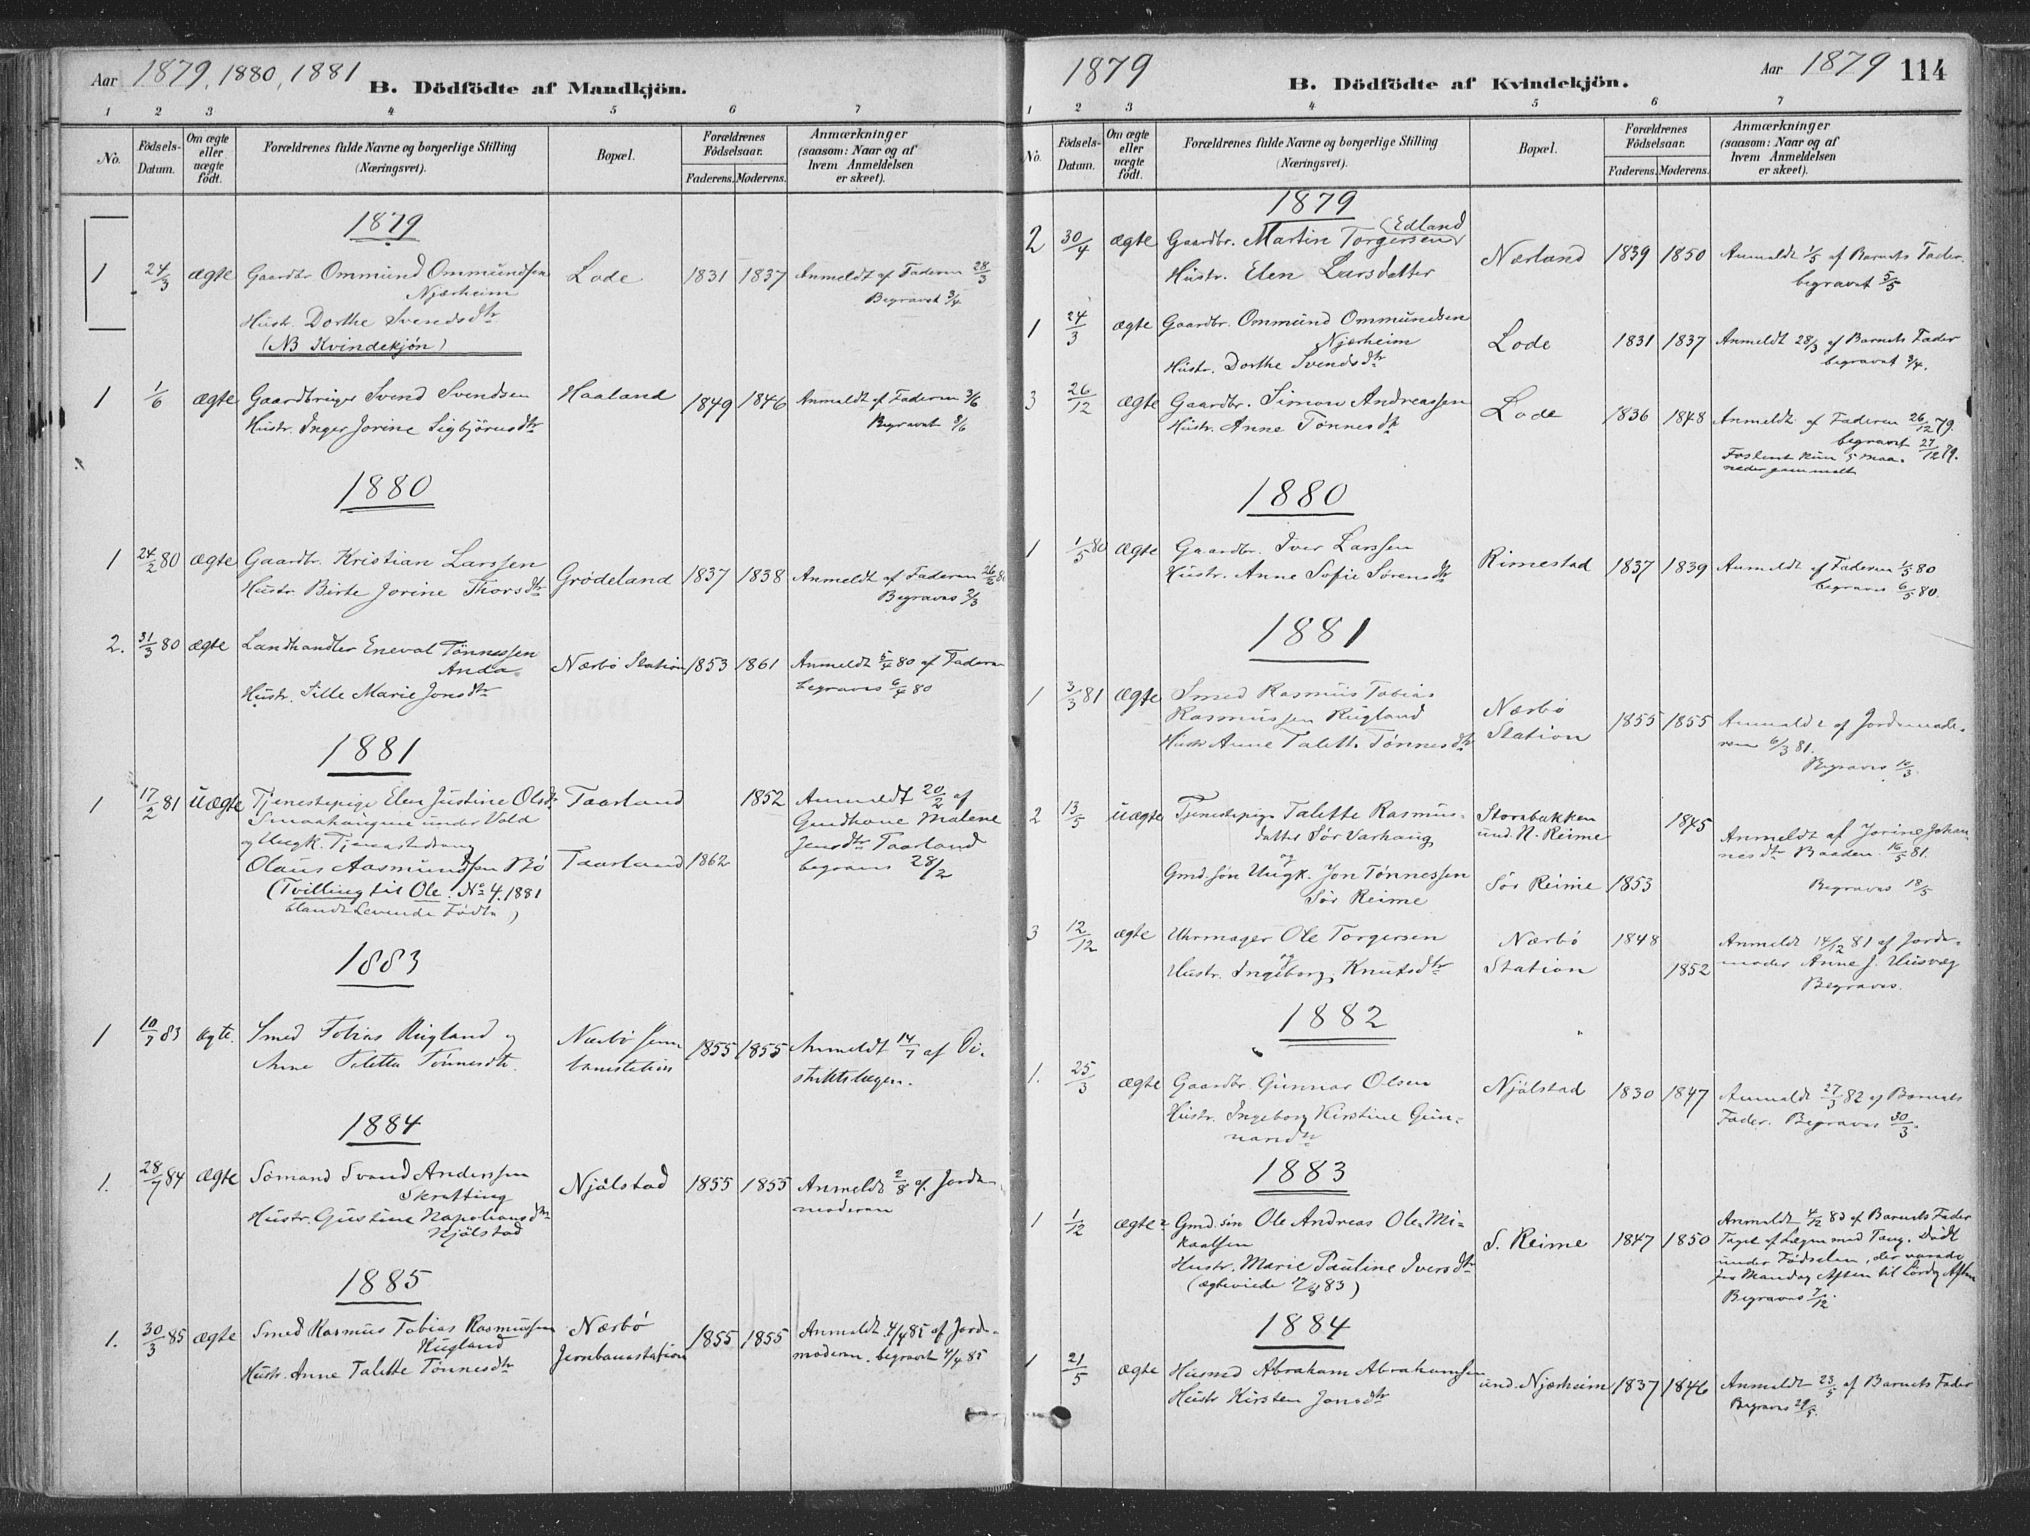 Aar 1879, 1880, 1881
B. Dödfödte af Mandkjön.
1 2 3 4 5 6 7
No.
Födsels-
Datum.
Om ægte
eller
uægte
födt.
Forældrenes fulde Navne og borgerlige Stilling
(Næringsvei).
Bopæl.
Forældrenes
Födselsaar.
Faderens. Moderens.
Anmærkninger
(saasom: Naar og af
hvem Anmeldelsen
er skeet).
1879
1 24/3 ægte Gaardbr Ommund Ommundsen Lode 1831 1837 Anmeldt af Faderen 28/3
Njærheim Begravet 3/4
Hustr. Dorthe Svendsdtr
(NB Kvindekjøn)
1 1/6 ægte Gaardbruger Svend Svendsen Haaland 1849 1846 Anmeldt af Faderen 3/6
Hustr. Inger Jorine Sigbjörnsdtr Begravet 3/6
1880
1 24/2 80 ægte Gaardbr. Kristian Larssen Grödeland 1837 1838 Anmeldt af Faderen 26/2 80
Hustr Birte Jorine Thorsdtr Begraves 2/3
2. 31/3 80 ægte Landhandler Eneval Tönnessen Nærbö Station 1853 1861 Anmeldt 5/4 80 af Faderen
Anda begraves 6/4 80
Hustr. Sille Marie Jonsdtr
1881
1 17/2 81 uægte Tjenestepige Elen Justine Olsdtr Taarland 1852 Anmeldt 20/2 af
under Vold Malene
og Ungk. Tjenestedreng Taarland
Olaus Aasmundsen Bö Taarland 1862 begraves 28/2
(Tvilling til Ole. No 4. 1881
blandt Levende Födte)
1883
1 10/7 83 ægte. Smed Tobias Rugland og Nærbö Jern 1855 1855 Anmeldt 14/7 af Di-
Anne Taletta Tönnesdtr. banestation striktslægen.
1884
1. 28/7 84 ægte Sömand Svend Anderssen Njölstad 1855 1855 Anmeldt 2/8 af Jorde-
Skretting moderen
Hustr. Gustine Napoleonsdtr
Njölstad
1885
1. 30/3 85 ægte Smed Rasmus Tobias Rasmussen Nærbö 1855 1855 Anmeldt 4/4 85 af Jorde-
Rugland Jernbanestation moderen. begravet 4/4 85
Hustr. Anne Talette Tönnesdtr
1879
B. Dödfödte af Kvindekjön.
Aar 1879 114
1 2 3 4 5 6 7
No.
Födsels-
Datum.
Om ægte
eller
uægte
födt.
Forældrenes fulde Navne og borgerlige Stilling
(Næringsvei).
Bopæl.
Forældrenes
Födselsaar.
Faderens. Moderens.
Anmærkninger
(saasom: Naar og af
hvem Anmeldelsen
er skeet).
1879
2 30/4 ægte Gaardbr. Martin Torgersen (Edland Nærland 1839 1850 Anmeldt 1/5 af Barnets Fader.
Hustr. Elen Larsdatter begravet 5/5
1 24/3 ægte Gaardbr. Ommund Ommundsen Lode 1831 1837 Anmeldt 28/3 af Barnets Fader
Njærheim begravet 3/4.
Hustr. Dorthe Svendsdtr
3 26/12 ægte Gaardbr. Simon Andreassen Lode 1836 1848 Anmeldt af Faderen 26/12 79.
Hustr. Anne Tönnesdtr begravet 27/12 79.
Fosteret kun 5 Maa-
neder gammelt
1880
1 1/5 80 ægte Gaardbr. Iver Larssen Rimestad 1837 1839 Anmeldt af Faderen 1/5 80
Hustr. Anne Sofie Sörensdtr begraves 6/5 80.
1881
1 3/3 81 ægte Smed Rasmus Tobias Nærbö 1855 1855 Anmeldt af Jordemode-
Rasmussen Rugland Station ren 6/3 81.
Hustr Anne Talette Tönnesdtr Begraves
2 13/5 uægte Tjenestepige Talette Rasmus- Storabakken 1845 Anmeldt af Jorine Johan-
datter Sör Varhaug und. N. Reime nesdtr 16/5 81.
og
Gmd. sön Ungk. Jon Tönnessen Sör Reime 1853 Begraves 18/5
Sör Reime
3 12/12 ægte Uhrmager Ole Torgersen Nærbö 1848 Anmeldt 14/12 81 af Jorde-
og
Hustr. Ingeborg Knutsdtr Station 1852 moder Anne J. Husvæg
Begraves.
1882
1. 25/3 ægte Gaardbr. Gunnar Olsen Njölstad 1830 1847 Anmeldt 27/3 82 af Barnets
Hustr. Ingeborg Kirstine Gun- Fader. Begraves 30/3.
narsdtr
1883
1 1/12 ægte Gmd. sön Ole Andreas Ole Mi- S. Reime 1847 1850 Anmeldt 4/12 83 af Barnets Fader
kaelsen Taget af Lægen med Tang. Dödt
Hustr. Marie Pauline Iversdtr under Födselen, der varede
83) fra Mandag Aften til Lördag Aften
Begraves 7/12.
1884
1 21/5 ægte Husmd Abraham Abrahamsen und. Njærheim 1837 1846 Anmeldt 23/5 af Barnets Fader
Hustr Kirsten Jonsdtr Begraves